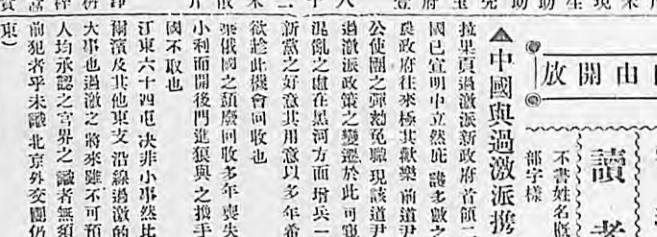 放開由
讀者
不書姓名旣
部字樣
▲中國與過激派携
拉果頁過激派新政府首領二
國已宣明中立然庇護多數之
長政府往來極其歡樂前道尹
公使團之彈劾免職現該道尹
過激派政策之變遷於此可窺
混亂之處在黑河方面增兵一
新黨之好意其用意以多年希
欲趁此機會回收也
乘俄國之頹廢回收多年喪失
小利而開後門進狼與之携手
國不取也
江東六十四屯决非小事然比
爾濱及其他東支沿線過激的
大事也過激之將來雖不可預
人均承認之官界之識者無須
前犯者乎未識北京外交團仍
東)